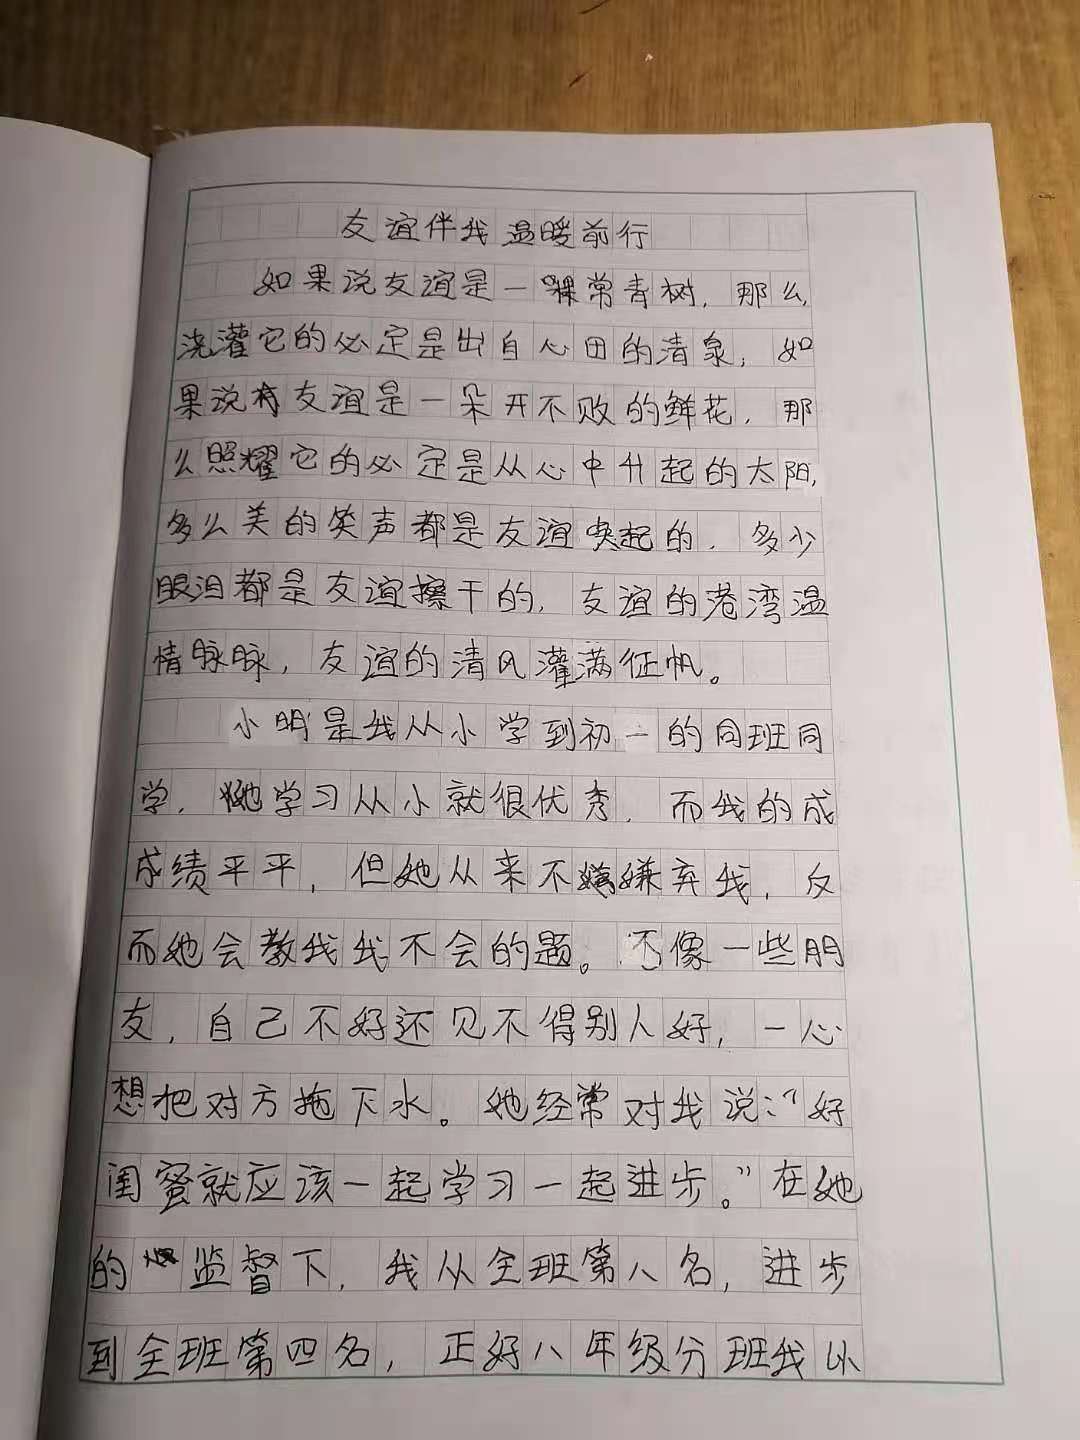 友谊伴我温暖前行
如果说友谊是一棵常青树，那么，
浇灌它的必定是出自心田的清泉，如
果说友谊是一朵开不败的鲜花，那
么照耀它的必定是从心中升起的太阳，
多么美的笑声都是友谊唤起的，多少
眼泪都是友谊擦干的，友谊的港湾温
情脉脉，友谊的清风灌满征帆。
小明是我从小学到初一的同班同
学，她学习从小就很优秀，而我的成
成绩平平，但她从来不嫌弃我，反
而她会教我我不会的题。不像一些朋
友，自己不好还见不得别人好，一心
想把对方拖下水。她经常对我说：“好
闺蜜就应该一起学习一起进步。”在她
的监督下，我从全班第八名，进步
到全班第四名，正好八年级分班我以